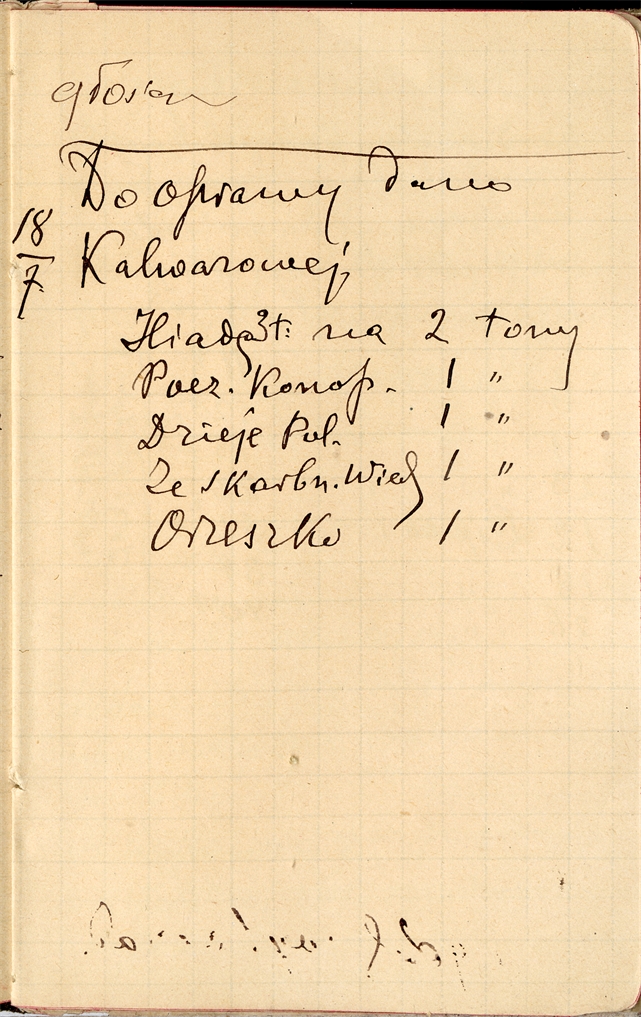 głosem
Do oprawy dano
18/7 Kalwarowej
Iliadę 3t: na 2 tomy
Poez. Konop. 1 "
Dzieje Pol. 1 "
Ze skarbn. Wied 1 "
Orzeszko 1 "